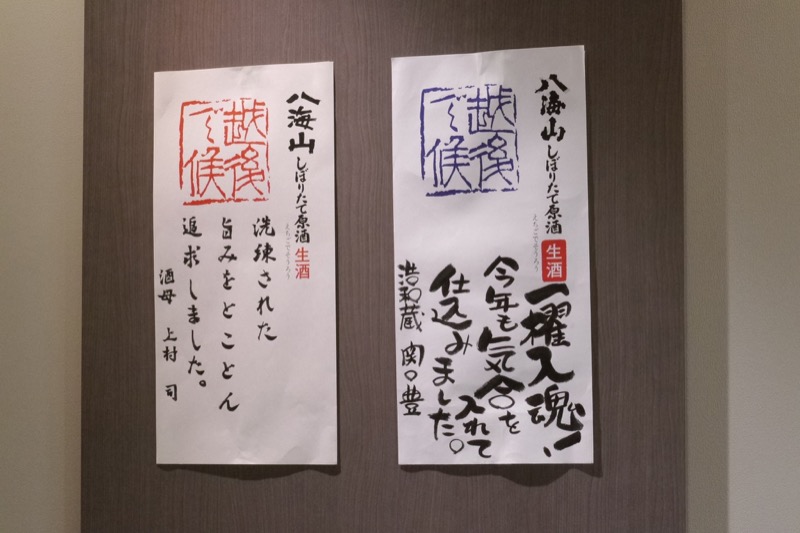 八海山 しぼりたて原酒 生酒
えちごでそうろう
越後
で候
洗練された
旨みをとことん
追求しました。
酒母 上村 司
八海山 しぼりたて原酒 生酒
えちごでそうろう
越後
で候
一櫂入魂!!
今年も気合を
入れて
仕込みました。
浩和蔵 関 豊